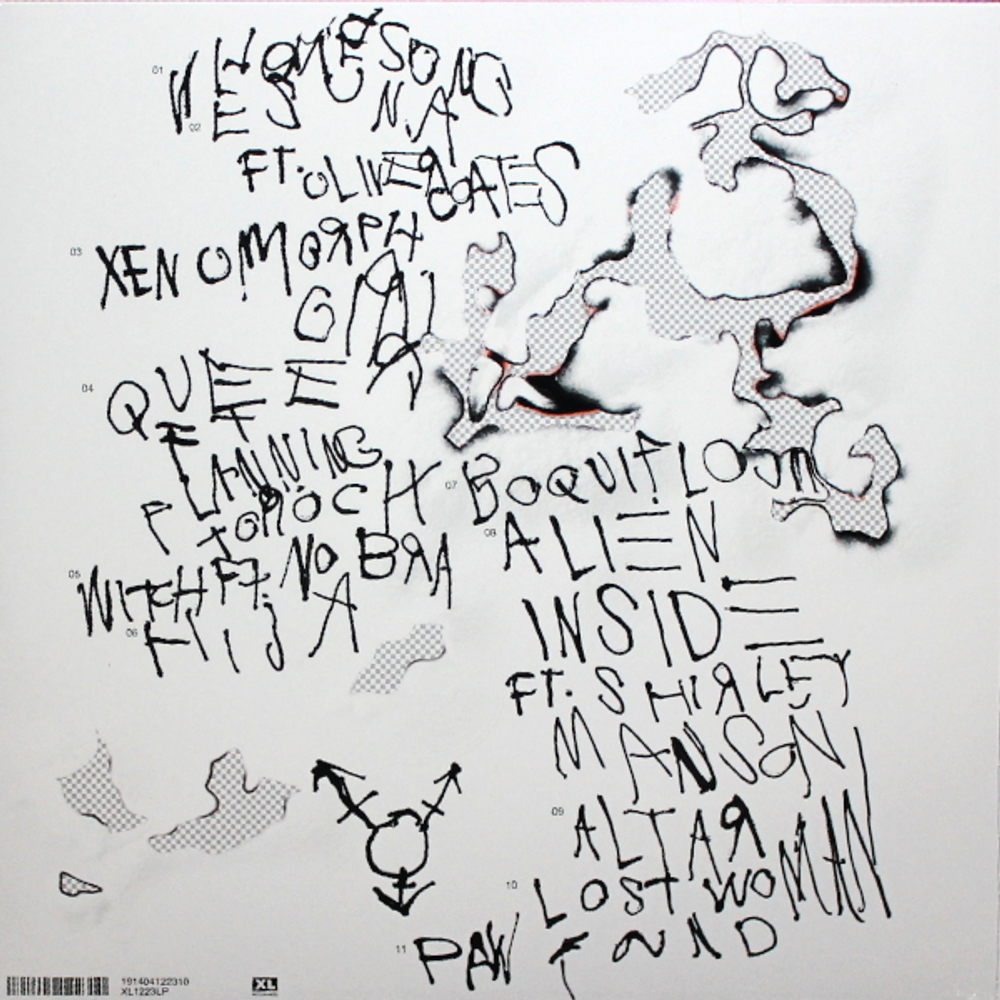 01 WHORESONG
02 ESUNA
FT. OLIVER COATES
03 XENOMORPH
GIRL
04 QUEER
FT
PLANNING
TOROCK
05 WITCH FT. NO BRA
06 HIJA
07 BOQUIFLOJA
08 ALIEN
INSIDE
FT. SHIRLEY
MANSON
09 ALTAR
10 LOST WOMAN
FOUND
11 PAW
191404122310
XL1223LP
XL